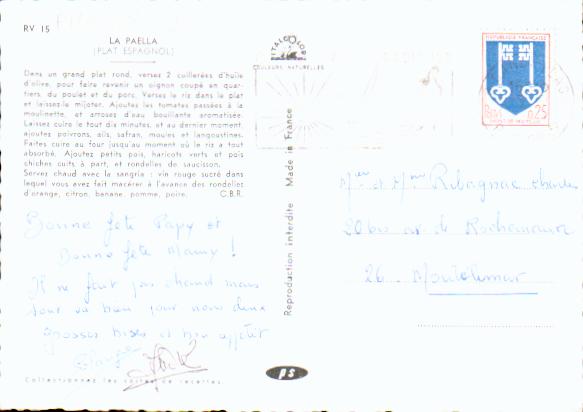 RV 15
LA PAELLA
(PLAT ESPAGNOL)
Dans un grand plat rond, versez 2 cuillerées d'huile
d'olive, pour faire revenir un oignon coupé en quar-
tiers, du poulet et du porc. Versez le riz dans le plat
et laissez-le mijoter. Ajoutez les tomates passées à la
moulinette, et arrosez d'eau bouillante aromatisée.
Laissez cuire le tout dix minutes, et au dernier moment,
ajoutez poivrons, ails, safran, moules et langoustines.
Faites cuire au four jusqu'au moment où le riz a tout
absorbé. Ajoutez petits pois, haricots verts et pois
chiches cuits à part, et rondelles de saucisson.
Servez chaud avec la sangria : vin rouge sucré dans
lequel vous avez fait macérer à l'avance des rondelles
d'orange, citron, banane, pomme, poire. C.B.R.
Bonne fête Papy et
Bonne fête Mamy !
Il ne fait pas chaud mais
tout va bien pour nous deux
grosses bises et bon appétit
Collectionnez les cartes de recettes.
ITALCOLOR
COULEURS NATURELLES
Reproduction interdite Made in France
ps
REPUBLIQUE FRANÇAISE
0,25
Mr et Mme Ribagnac
20bis av. de Rochemaure
26. Montélimar